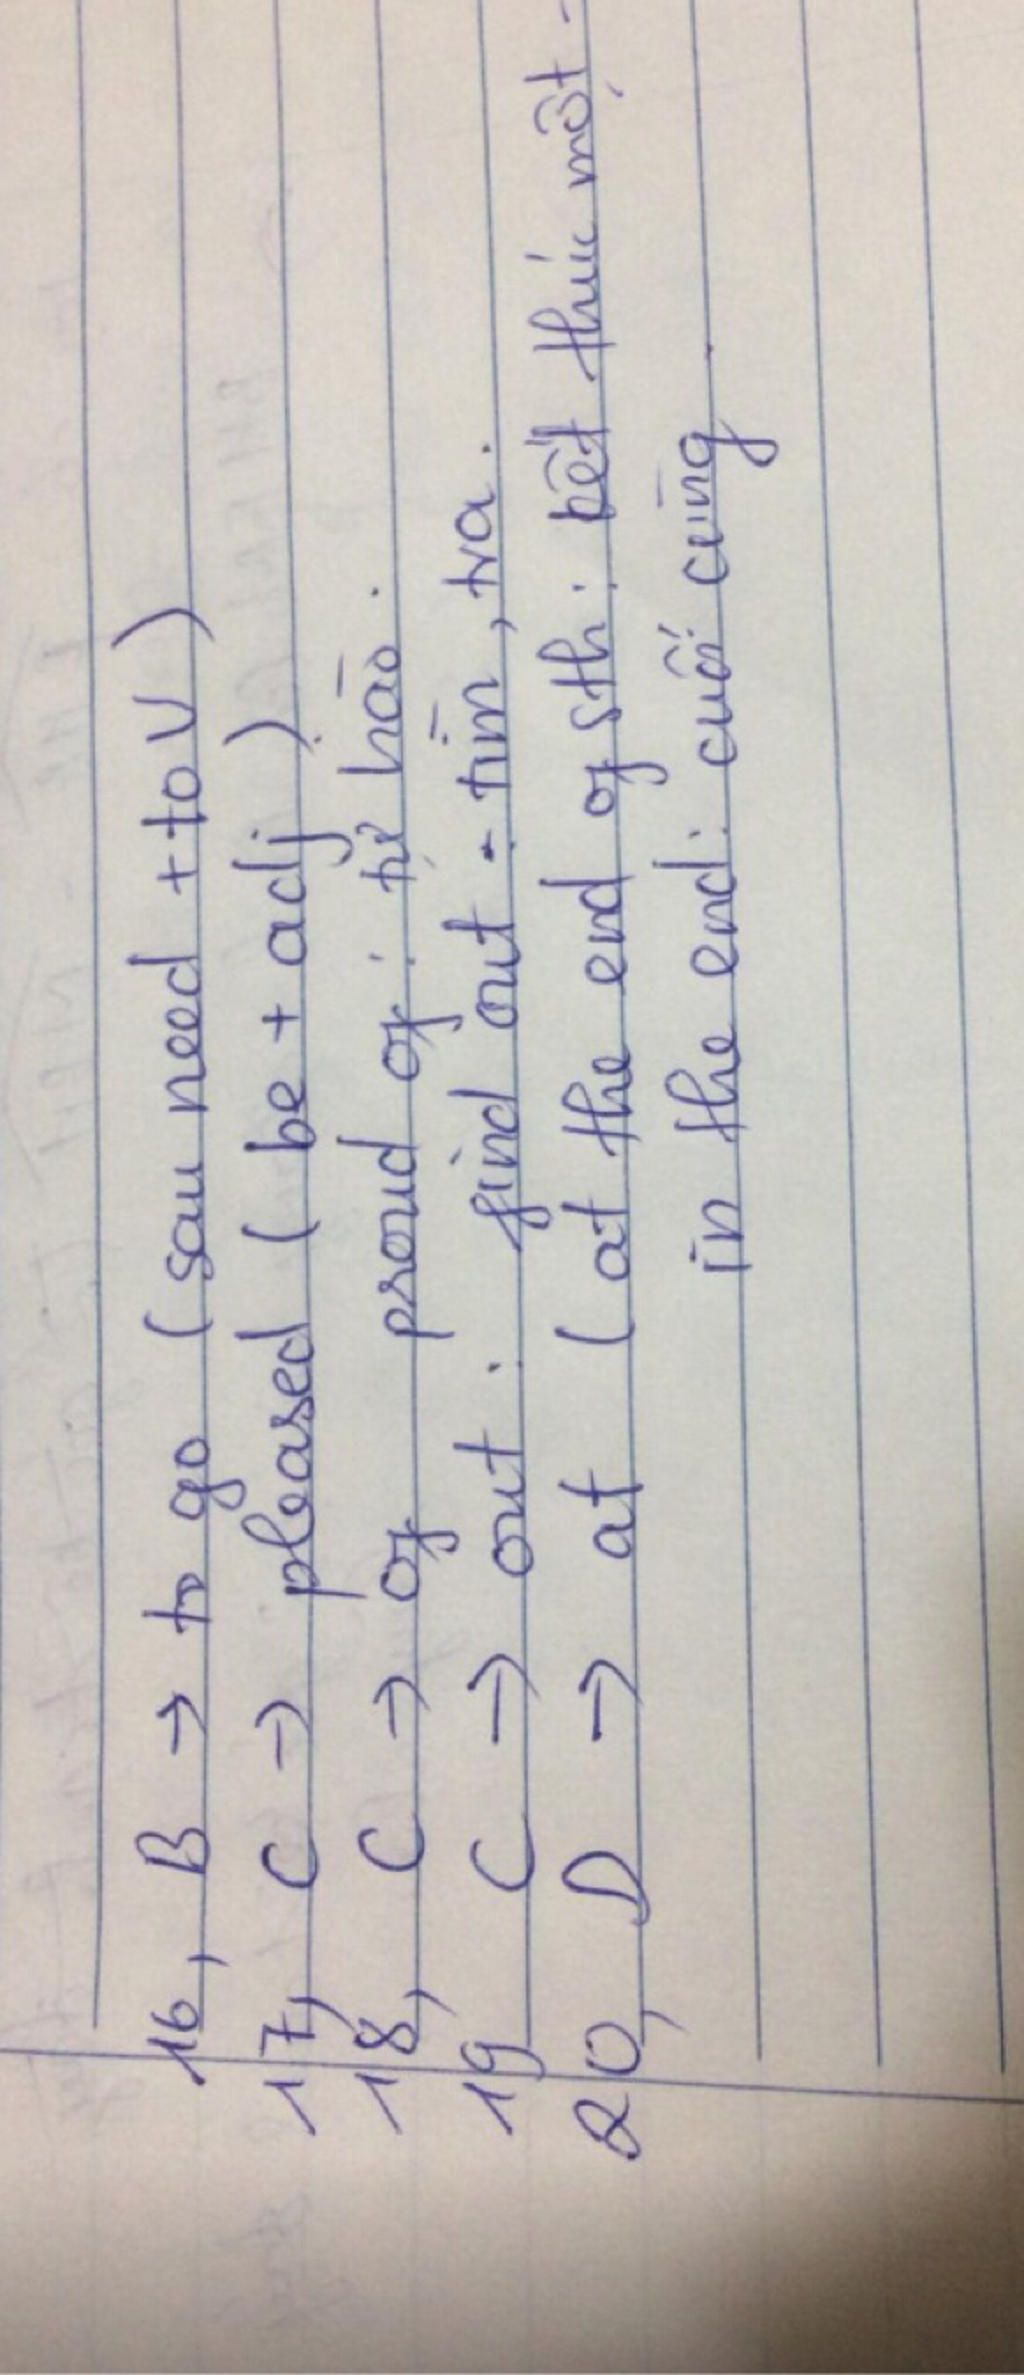 16, B → to go (sau need + to V)
17, C → pleased (be + adj)
18, C → of proud of: tự hào.
19 C → out: find out - tìm, tra.
20, D → at (at the end of sth: kết thúc một -
in the end: cuối cùng